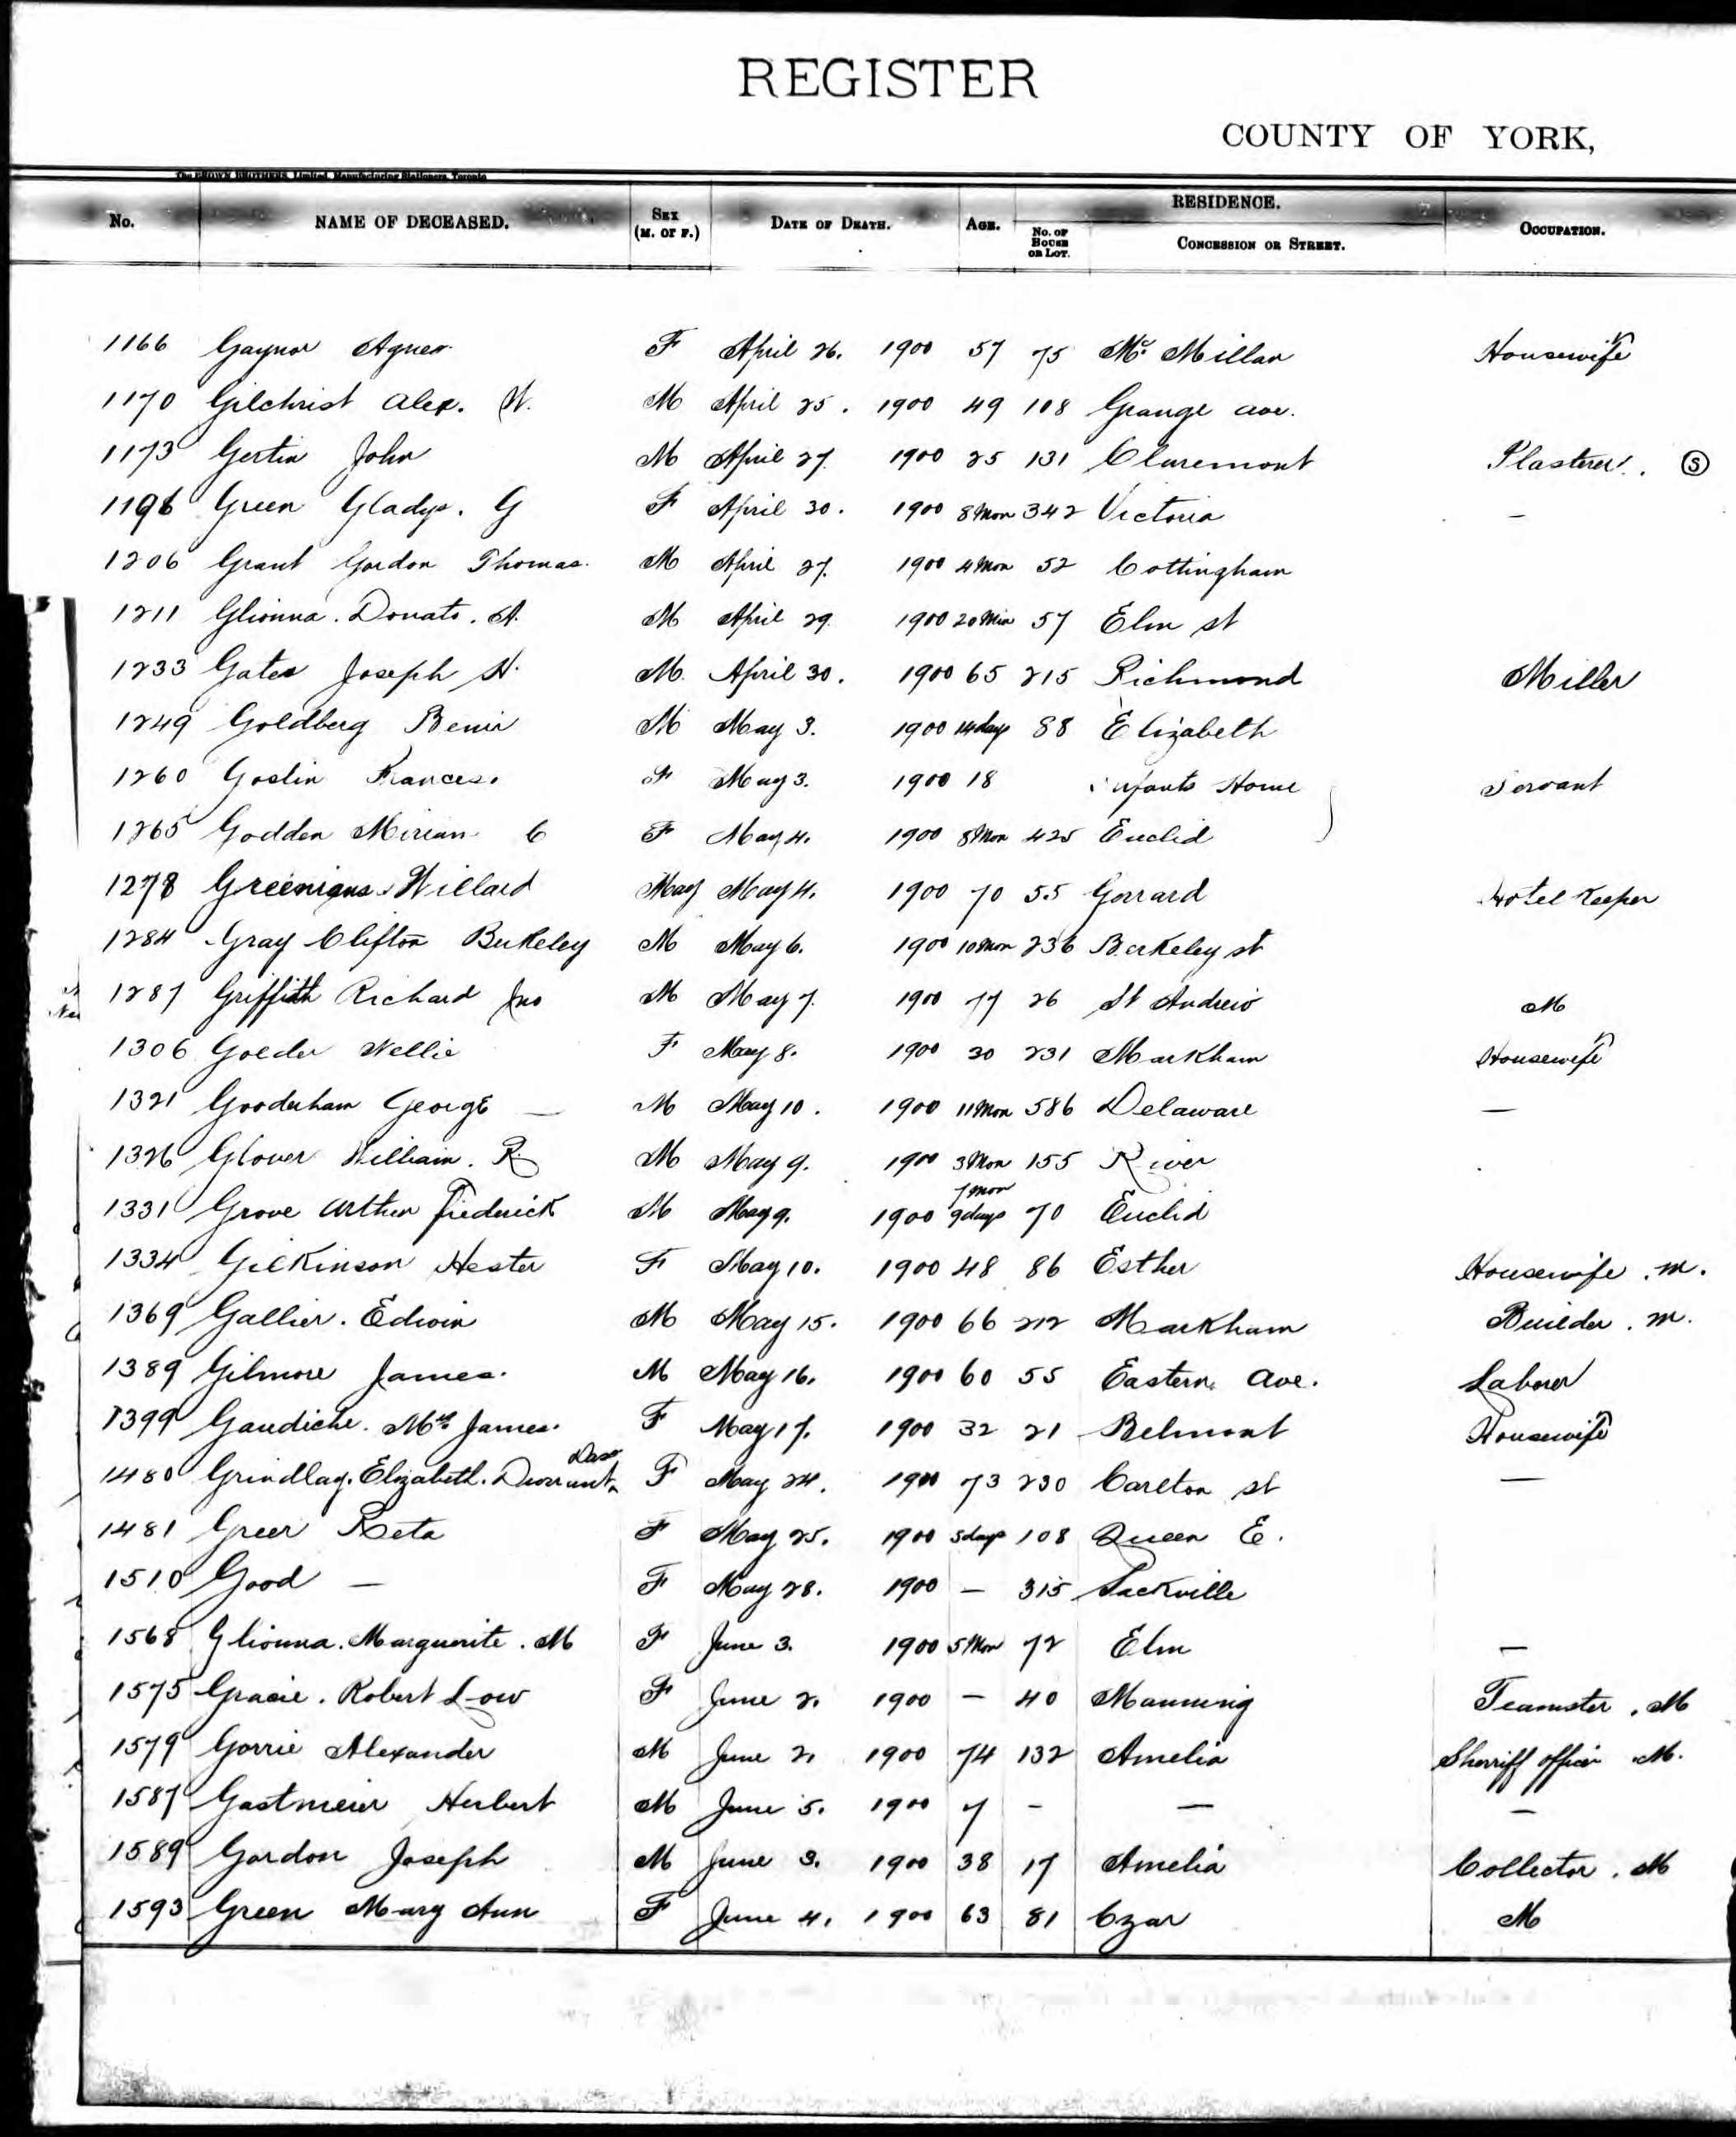 REGISTER
COUNTY OF YORK,
The BROWN BROTHERS, Limited, Manufacturing Stationers, Toronto
No. NAME OF DECEASED. SEX (M. OF F.) DATE OF DEATH. AGE. RESIDENCE. No. OF HOUSE OR LOT. CONCESSION OR STREET. OCCUPATION.
1166 Gaynor Agnes F April 26. 1900 57 75 Mc Millan Housewife
1170 Gilchrist Alex. W. M April 25. 1900 49 108 Grange ave.
1173 Gertin John M April 27. 1900 25 131 Claremont Plasterer. S
1196 Green Gladys. G F April 30. 1900 8 Mon 342 Victoria —
1206 Grant Gordon Thomas. M April 27. 1900 4 Mon 52 Cottingham
1211 Glionna. Donato. A. M April 29. 1900 20 Min 57 Elm st
1233 Gates Joseph H. M. April 30. 1900 65 215 Richmond Miller
1249 Goldberg M May 3. 1900 14 days 88 Elizabeth
1260 Goslin Frances. F May 3. 1900 18 Infants Home Servant
1265 Godden Miriam C F May 4. 1900 8 Mon 425 Euclid
1278 Willard May May 4. 1900 70 55 Gerrard Hotel Keeper
1284 Gray Clifton Berkeley M May 6. 1900 10 Mon 236 Berkeley st
1287 Griffith Richard Jno M May 7. 1900 77 26 St Andrew M
1306 Goeder Nellie F May 8. 1900 30 231 Markham Housewife
1321 Gooderham George — M May 10. 1900 11 Mon 586 Delaware —
1326 Glover William. R. M May 9. 1900 3 Mon 155 River
1331 Grove Arthur Frederick M May 9. 1900 7 mon 9 days 70 Euclid
1334 Gilkinson Hester F May 10. 1900 48 86 Esther Housewife. m.
1369 Gallier. Edwin M May 15. 1900 66 212 Markham Builder. m.
1389 Gilmore James. M May 16. 1900 60 55 Eastern Ave. Laborer
1399 Gaudiche. Mrs James. F May 17. 1900 32 21 Belmont Housewife
1480 Grindlay. Elizabeth. Durrant F May 24. 1900 73 230 Carlton st —
1481 Greer Reta F May 25. 1900 5 days 108 Queen E.
1510 Good — F May 28. 1900 — 315 Sackville
1568 Glionna. Marguerite. M F June 3. 1900 5 Mon 72 Elm —
1575 Gracie. Robert Low F June 2. 1900 — 40 Manning Teamster. M
1579 Gorrie Alexander M June 2. 1900 74 132 Amelia Sherriff officer M.
1587 Gastmeier Herbert M June 5. 1900 7 - — —
1589 Gordon Joseph M June 3. 1900 38 17 Amelia Collector. M
1593 Green Mary Ann F June 4. 1900 63 81 Czar M